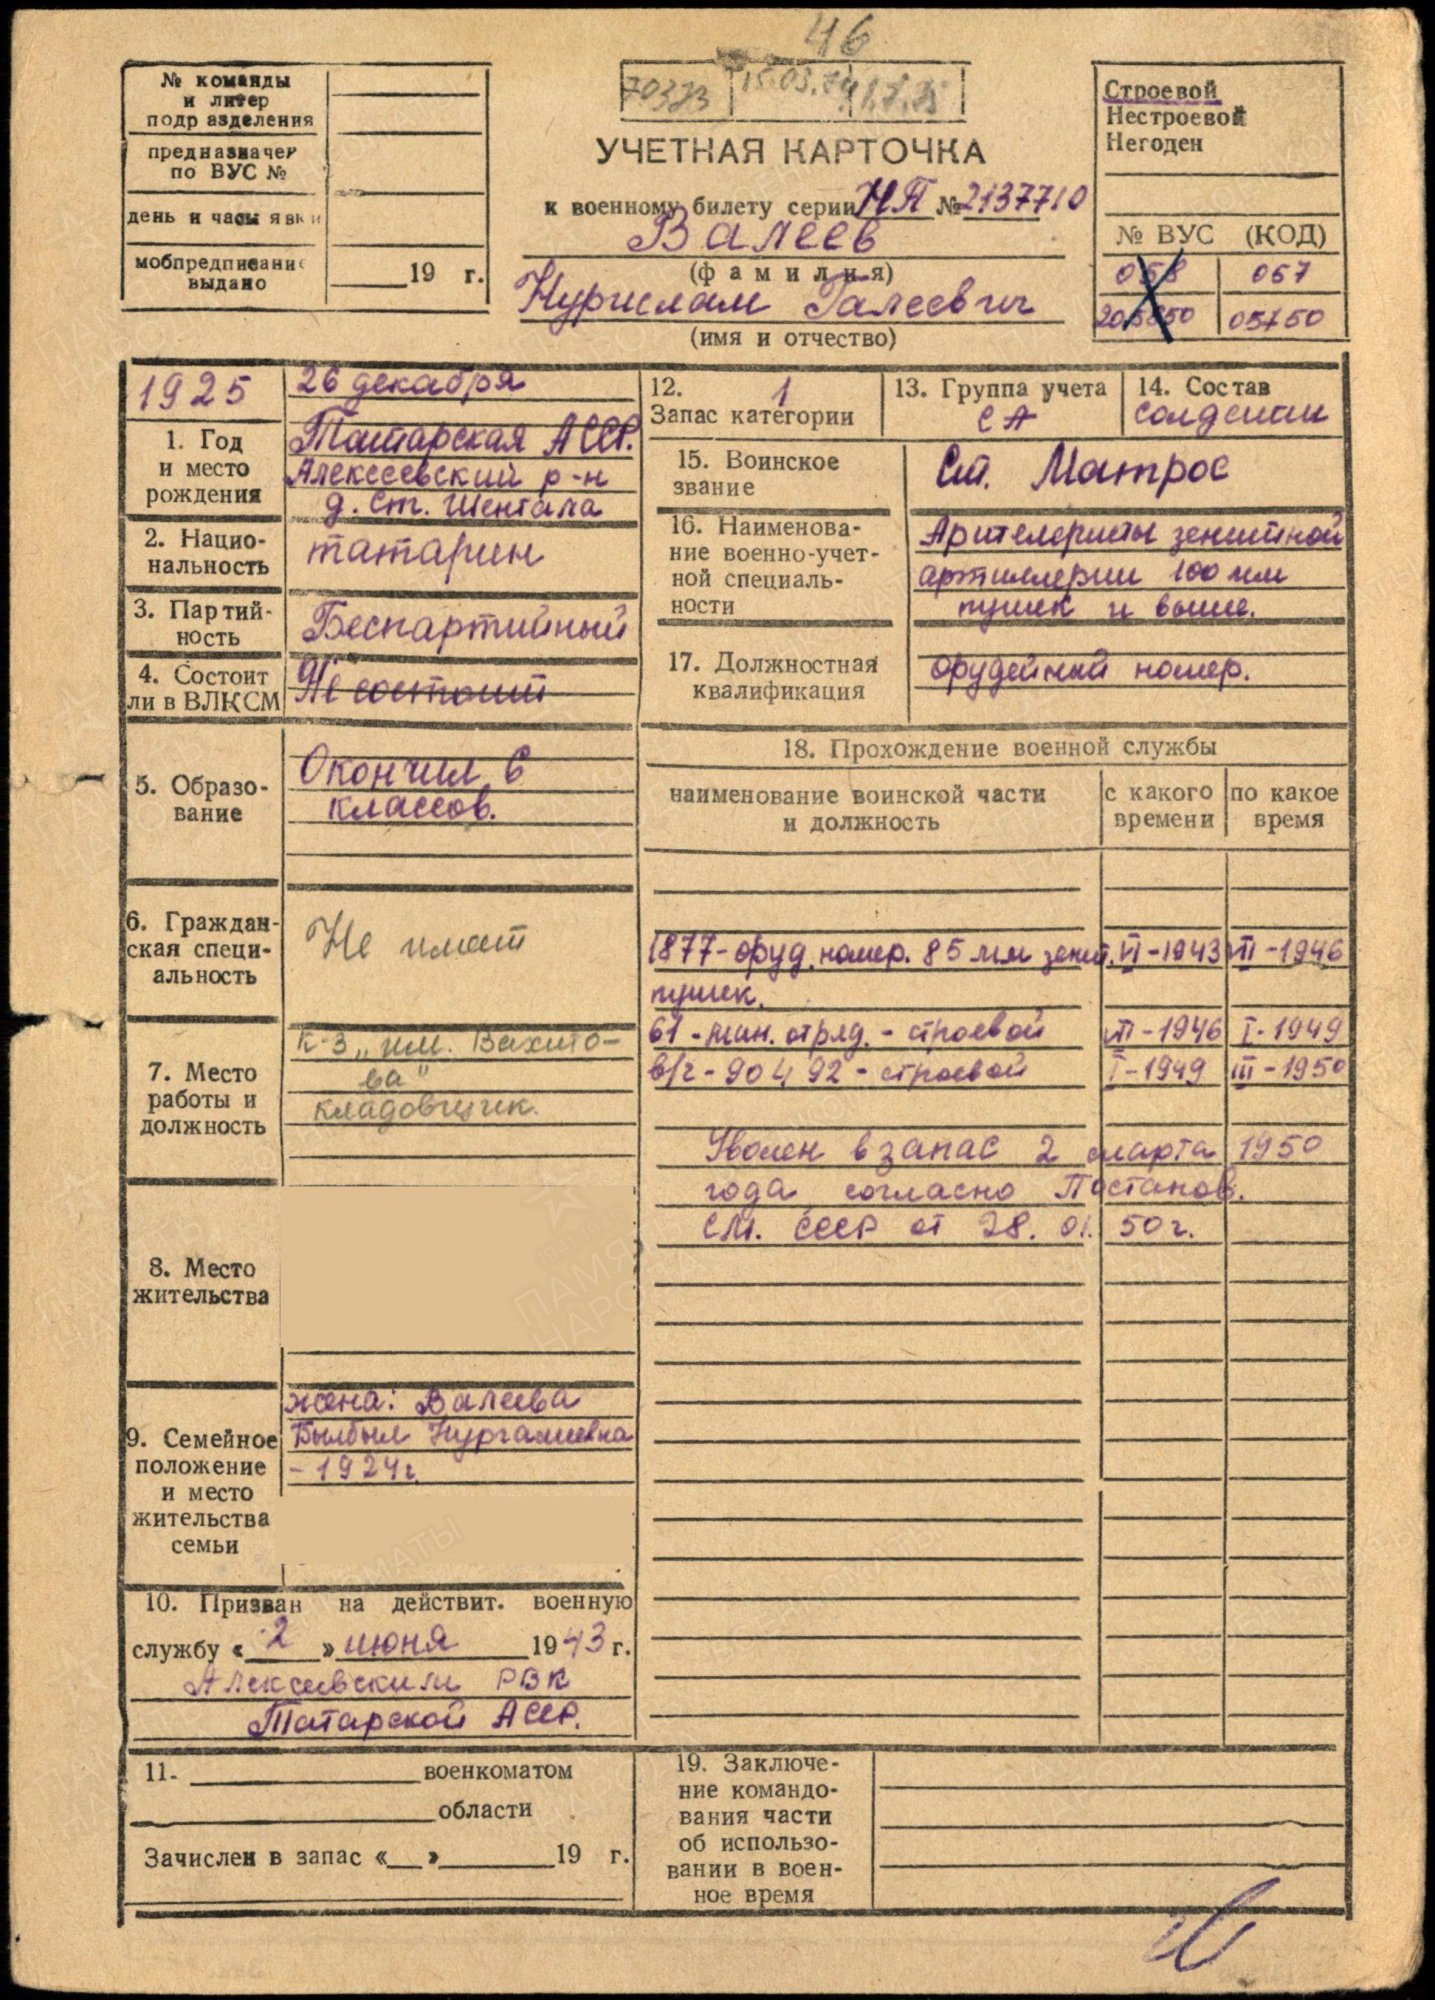 46
№ команды
и литер
подразделения
предназначен
по ВУС №
день и часы явки
мобпредписание
выдано
19 г.
70373 15.03.74
УЧЕТНАЯ КАРТОЧКА
к военному билету серии НП № 2137710
Валеев
(фамилия)
Нурислам Галеевич
(имя и отчество)
Строевой
Нестроевой
Негоден
№ ВУС (КОД)
058 057
205850 05750
1925
26 декабря
Татарская АССР.
Алексеевский р-н
д. Ст. Шентала
1. Год
и место
рождения
2. Нацио-
нальность
татарин
3. Партий-
ность
Беспартийный
4. Состоит
ли в ВЛКСМ
Не состоит
5. Образо-
вание
Окончил 6
классов.
6. Граждан-
ская специ-
альность
Не имеет
7. Место
работы и
должность
К-З „им. Вахито-
ва"
кладовщик.
8. Место
жительства
9. Семейное
положение
и место
жительства
семьи
жена: Валеева
Былбыл Нургалиевна
- 1924г.
10. Призван на действит. военную
службу « 2 » июня 1943 г.
Алексеевским РВК
Татарской АССР.
11. военкоматом
области
Зачислен в запас « » 19 г.
12. 1
Запас категории
13. Группа учета
СА
14. Состав
солдатский
15. Воинское
звание
Ст. Матрос
16. Наименова-
ние военно-учет-
ной специаль-
ности
Арителеристы зенитной
артиллерии 100 мм
пушек и выше.
17. Должностная
квалификация
орудейный номер.
18. Прохождение военной службы
наименование воинской части
и должность
с какого
времени
по какое
время
1877- оруд. номер. 85 мм зенит. VI-1943 VII-1946
пушек.
61-ман. отряд. - строевой VII-1946 I-1949
в/ч-90492 - строевой I-1949 III-1950
Уволен в запас 2 марта 1950
года согласно Постанов.
СМ. СССР от 28. 01. 50г.
19. Заключе-
ние командо-
вания части
об использо-
вании в воен-
ное время